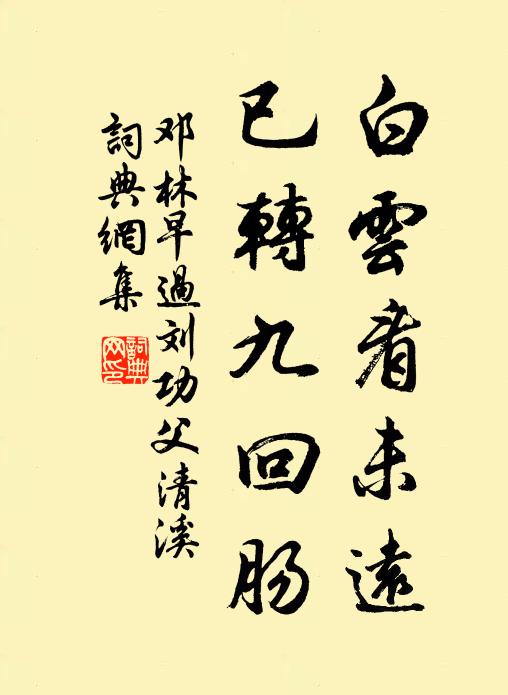 白雲看未遠
已轉九回肠
邓林早過刘功父清溪
詞典網集
詞典
网印